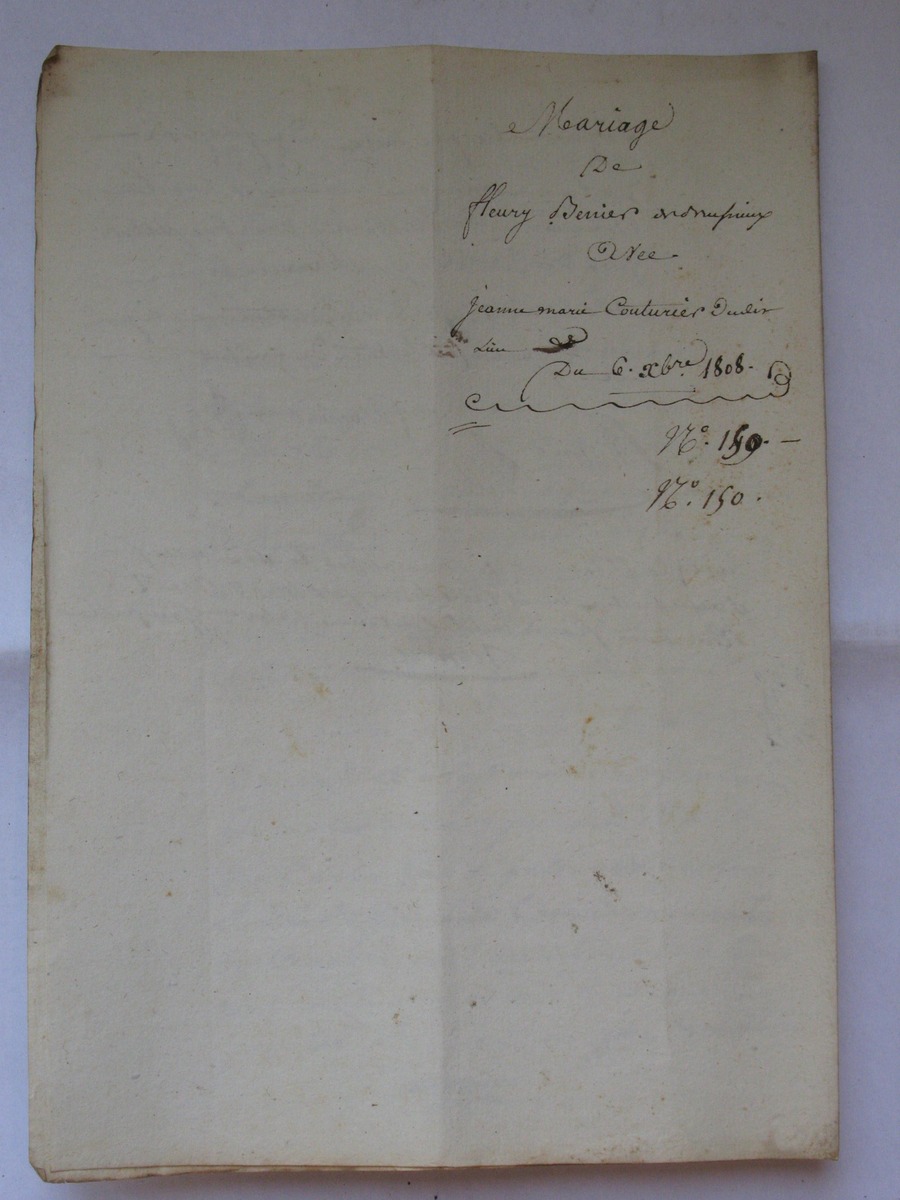 Mariage
De
fleury Benier
Avec
jeanne marie Couturier Dudit
Lieu
Du 6. xbre 1808.
No. 159. —
No. 150.